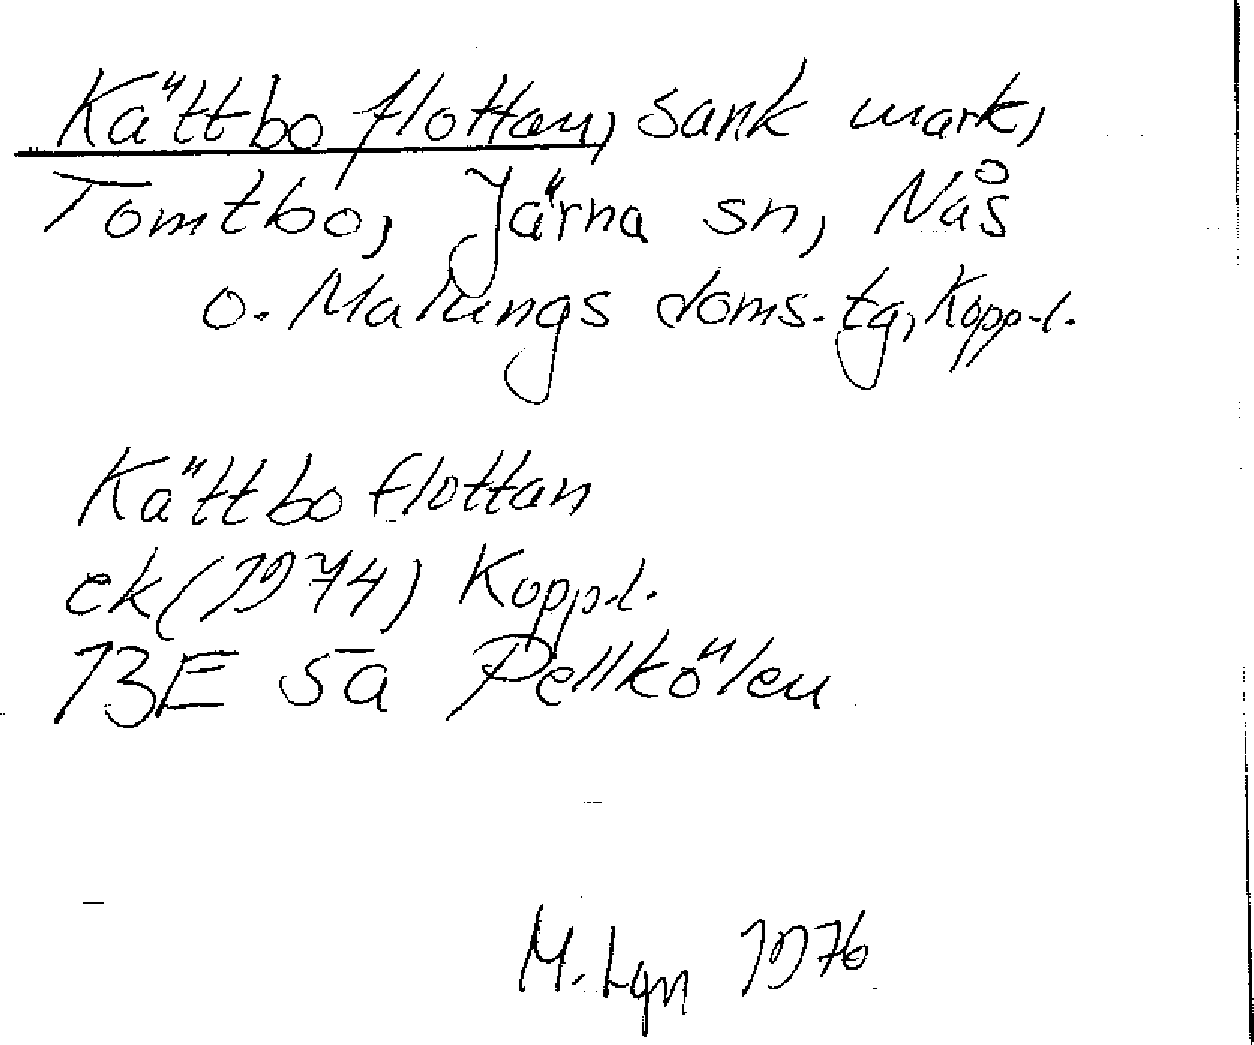 Kättbo flottan, sank mark,
Tomtbo, Järna sn, Nås
o. Malungs doms. tg, Kopp.l.
Kättbo flottan
ek (1974) Kopp.l.
13E 5a Pellkölen
M. Lgn 1976